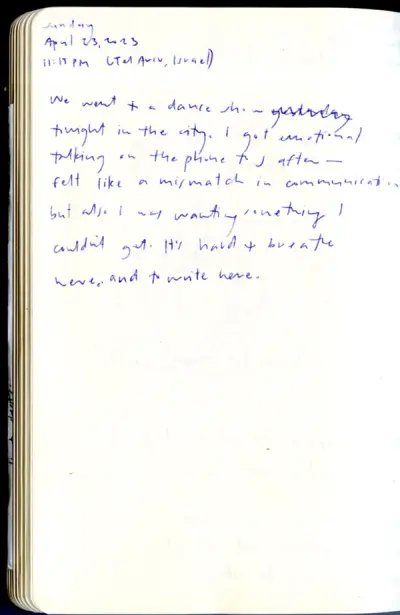 Sunday
April 23, 2023
11:15 PM (Tel Aviv, Israel)
We went to a dance show yesterday
tonight in the city. I got emotional
talking on the phone to J after —
felt like a mismatch in communication
but also I was wanting something I
couldn't get. It's hard to breathe
here, and to write here.